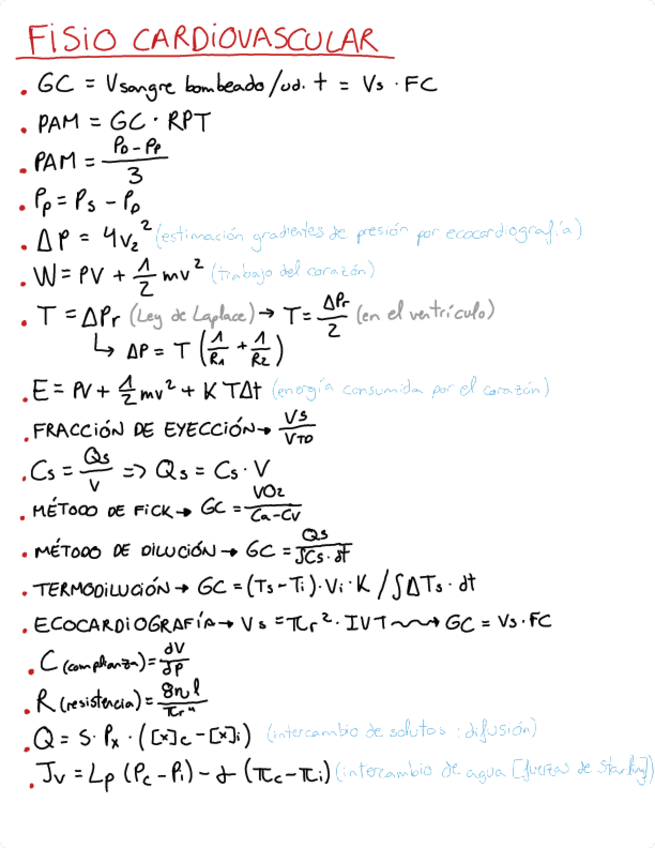 FISIO CARDIOVASCULAR
. GC = Vsangre bombeado/ud. t = Vs · FC
. PAM = GC · RPT
. PAM = (PD - Pp)/3
. Pp = Ps - PD
. ΔP = 4v₂² (estimación gradientes de presión por ecocardiografía)
. W = PV + 1/2 mv² (trabajo del corazón)
. T = ΔPr (Ley de Laplace) → T = ΔPr/2 (en el ventrículo)
↳ ΔP = T (1/R1 + 1/R2)
. E = PV + 1/2 mv² + K TΔt (energía consumida por el corazón)
. FRACCIÓN DE EYECCIÓN → VS/VTD
. Cs = Qs/V => Qs = Cs · V
. MÉTODO DE FICK → GC = VO2/(Ca-Cv)
. MÉTODO DE DILUCIÓN → GC = Qs/∫Cs·dt
. TERMODILUCIÓN → GC = (Ts - Ti) · Vi · K / ∫ΔTs · dt
. ECOCARDIOGRAFÍA → Vs = πr² · IVT ⇝ GC = Vs · FC
. C (complianza) = dV/dP
. R (resistencia) = 8ηl/πr⁴
. Q = S · Px · ([x]c - [x]i) (intercambio de solutos : difusión)
. Jv = Lp (Pc - Pi) - (πc - πi) (intercambio de agua [fuerzas de Starling])